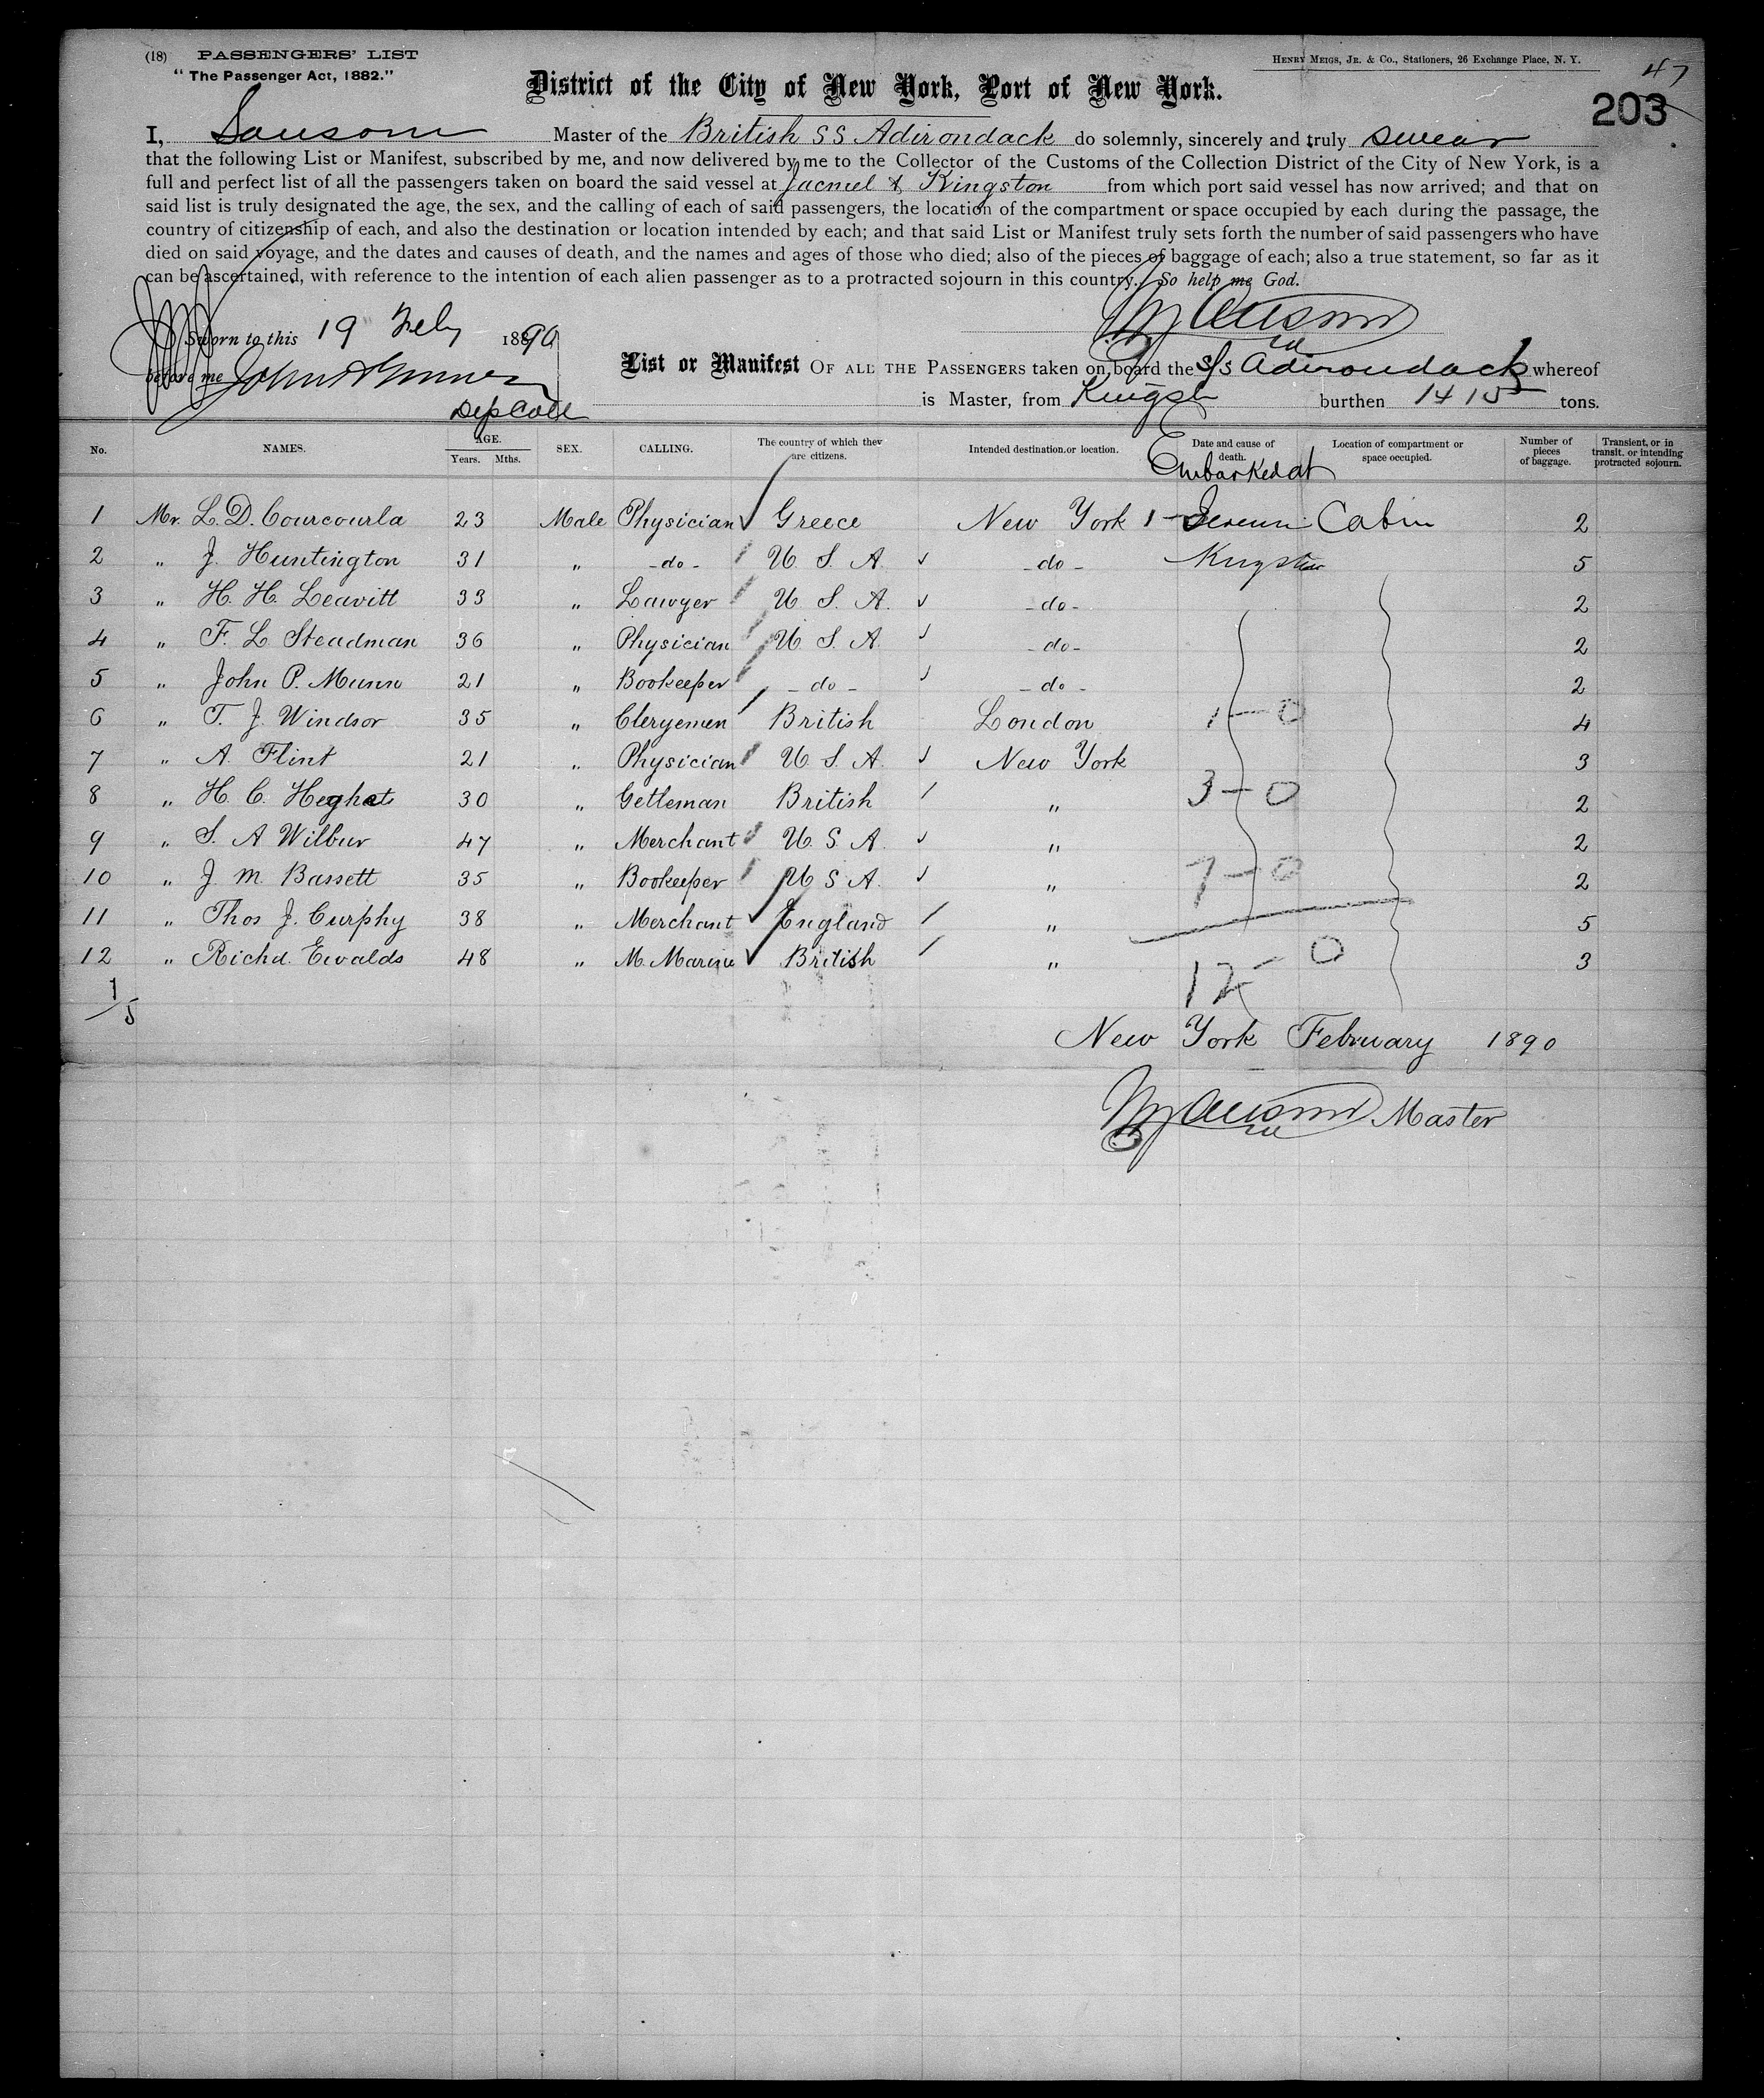 (18) PASSENGERS' LIST
HENRY MEIGS, JR. & CO., Stationers, 26 Exchange Place, N. Y.
47
"The Passenger Act, 1882."
District of the City of New York, Port of New York.
203
I, Sansom Master of the British SS Adirondack do solemnly, sincerely and truly swear
that the following List or Manifest, subscribed by me, and now delivered by me to the Collector of the Customs of the Collection District of the City of New York, is a
full and perfect list of all the passengers taken on board the said vessel at Jacmel & Kingston from which port said vessel has now arrived; and that on
said list is truly designated the age, the sex, and the calling of each of said passengers, the location of the compartment or space occupied by each during the passage, the
country of citizenship of each, and also the destination or location intended by each; and that said List or Manifest truly sets forth the number of said passengers who have
died on said voyage, and the dates and causes of death, and the names and ages of those who died; also of the pieces of baggage of each; also a true statement, so far as it
can be ascertained, with reference to the intention of each alien passenger as to a protracted sojourn in this country. So help me God.
Sworn to this 19 Feby 1890
before me John
Dep Coll
List or Manifest OF ALL THE PASSENGERS taken on board the S/S Adirondack whereof
is Master, from burthen 1415 tons.
No. NAMES. AGE. Years. Mths. SEX. CALLING. The country of which they are citizens. Intended destination or location. Date and cause of death. Location of compartment or space occupied. Number of pieces of baggage. Transient, or in transit, or intending protracted sojourn.
Embarked at
1 Mr. L. D. Courcourla 23 Male Physician Greece New York 1 - Cabin 2
2 " J. Huntington 31 " - do - U. S. A. - do - Kingston 5
3 " H. H. Leavitt 33 " Lawyer U S. A. - do - 2
4 " F. L Steadman 36 " Physician U. S. A. - do - 2
5 " John P. Munn 21 " Bookeeper - do - - do - 2
6 " T. J. Windsor 35 " Clergemen British London 1-0 4
7 " A. Flint 21 " Physician U. S. A. New York 3
8 " H. C. Heghats 30 " Getleman British " 3-0 2
9 " S. A Wilbur 47 " Merchant U. S. A. " 2
10 " J. M. Bassett 35 " Bookeeper U S A. " 7-0 2
11 " Thos J. Curphy 38 " Merchant England " 5
12 " Richd. Ewalds 48 " M. Marine British " 3
1/5
12-0
New York February 1890
Master